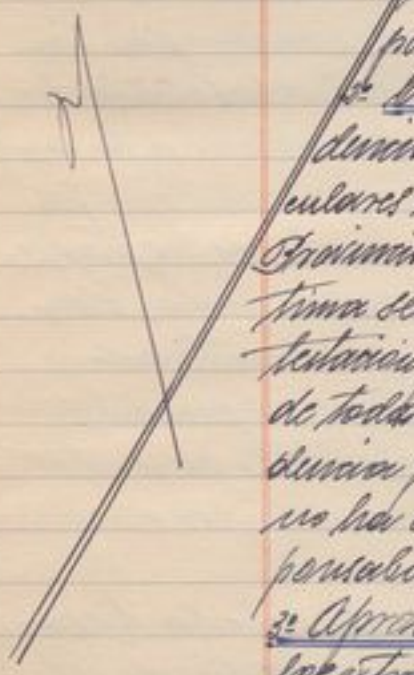 2º
denci
culares
Provincia
tima se
testacion
de todas
dencia p
no ha
ponsabi
3º Apro